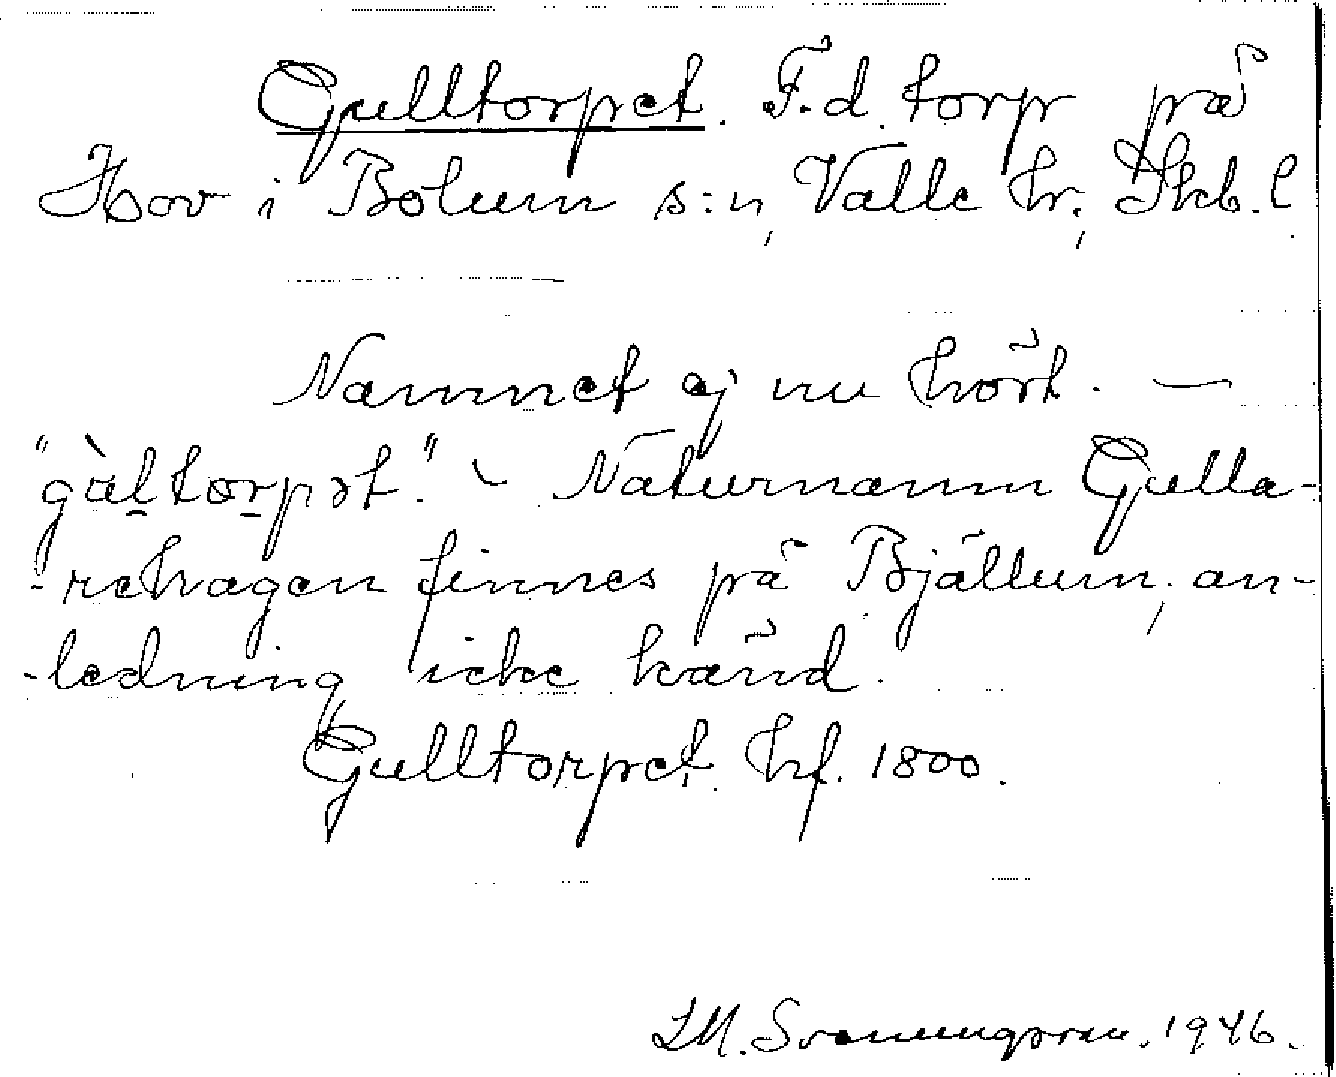 Gulltorpet. F.d. torp på
Hov i Bolum s:n, Valle hr; Skb. l.
Namnet ej nu hört. —
"gu̇̀ltorpət." - Naturnamn Gulla-
-rehagen finnes på Bjällum, an-
-ledning icke känd.
Gulltorpet hf. 1800.
LM. Svenungsson. 1946.